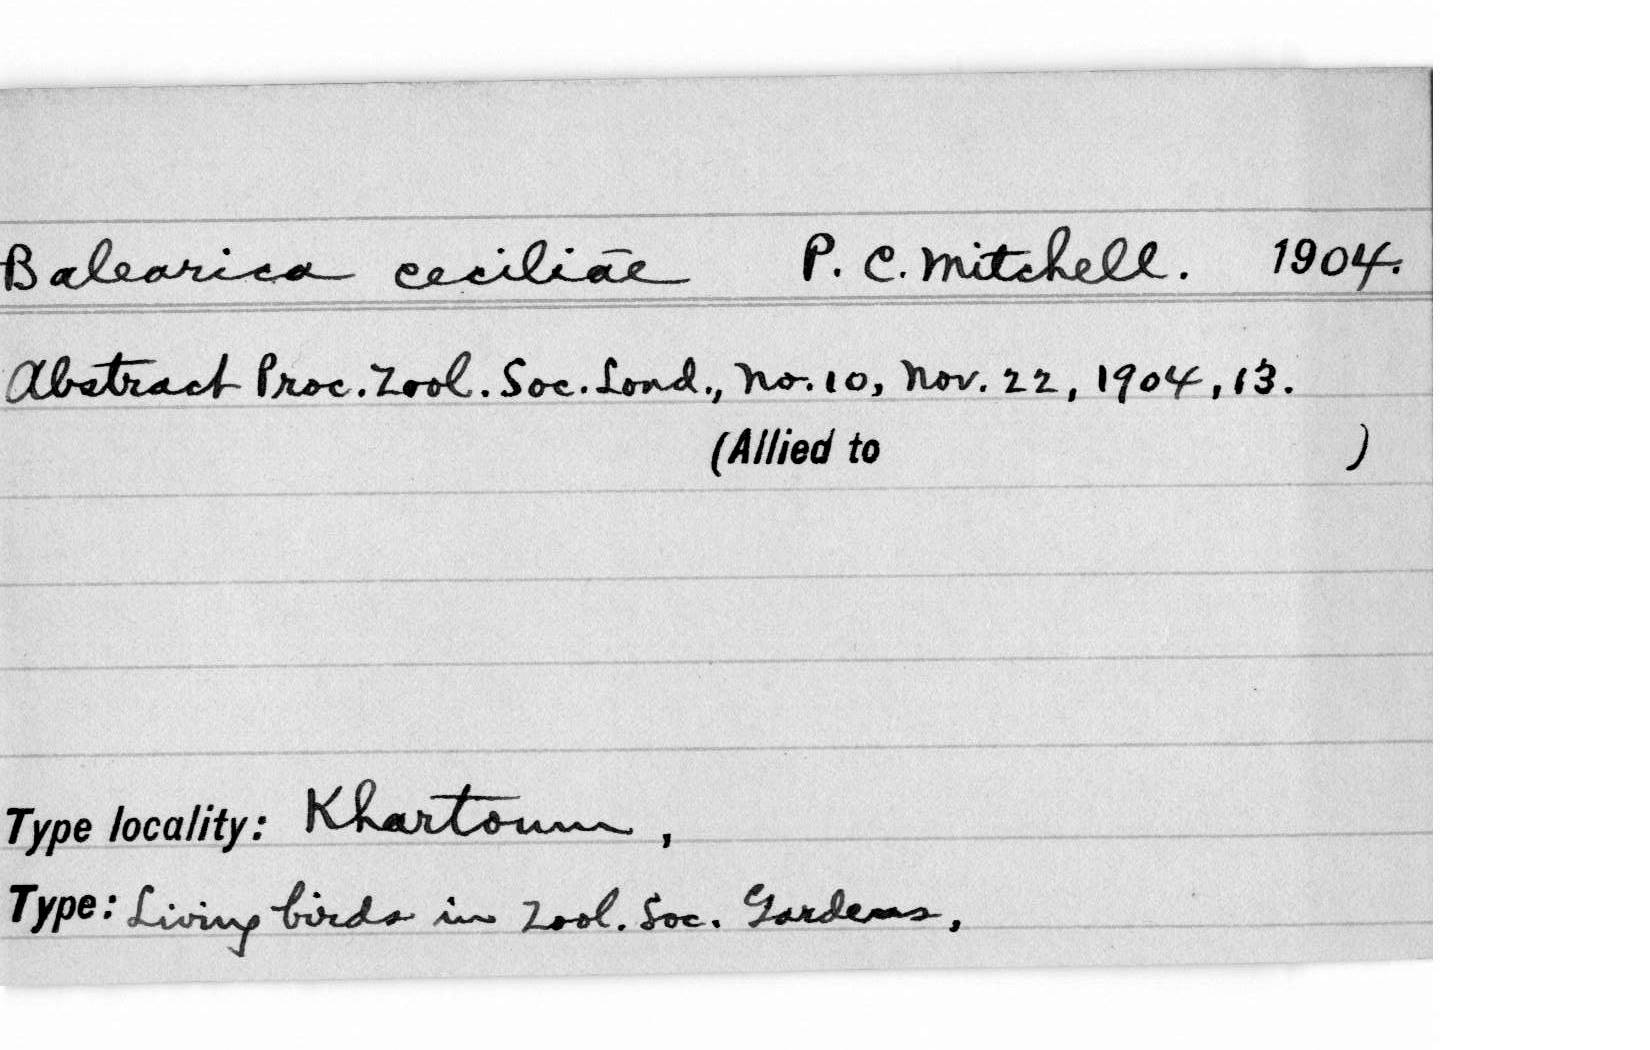 Balearica ceciliae P. C. Mitchell. 1904.
Abstract Proc. Zool. Soc. Lond., No. 10, Nov. 22, 1904, 13.
(Allied to )
Type locality: Khartoum,
Type: Living birds in Zool. Soc. Gardens,